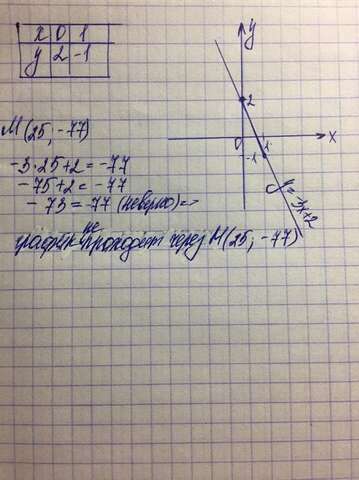 x 0 1
y 2 -1
M(25, -77)
-3·25+2=-77
-75+2=-77
-73=-77 (неверно)=>
график не проходит через M(25, -77)
y
2
0
1
x
-1
y=-3x+2